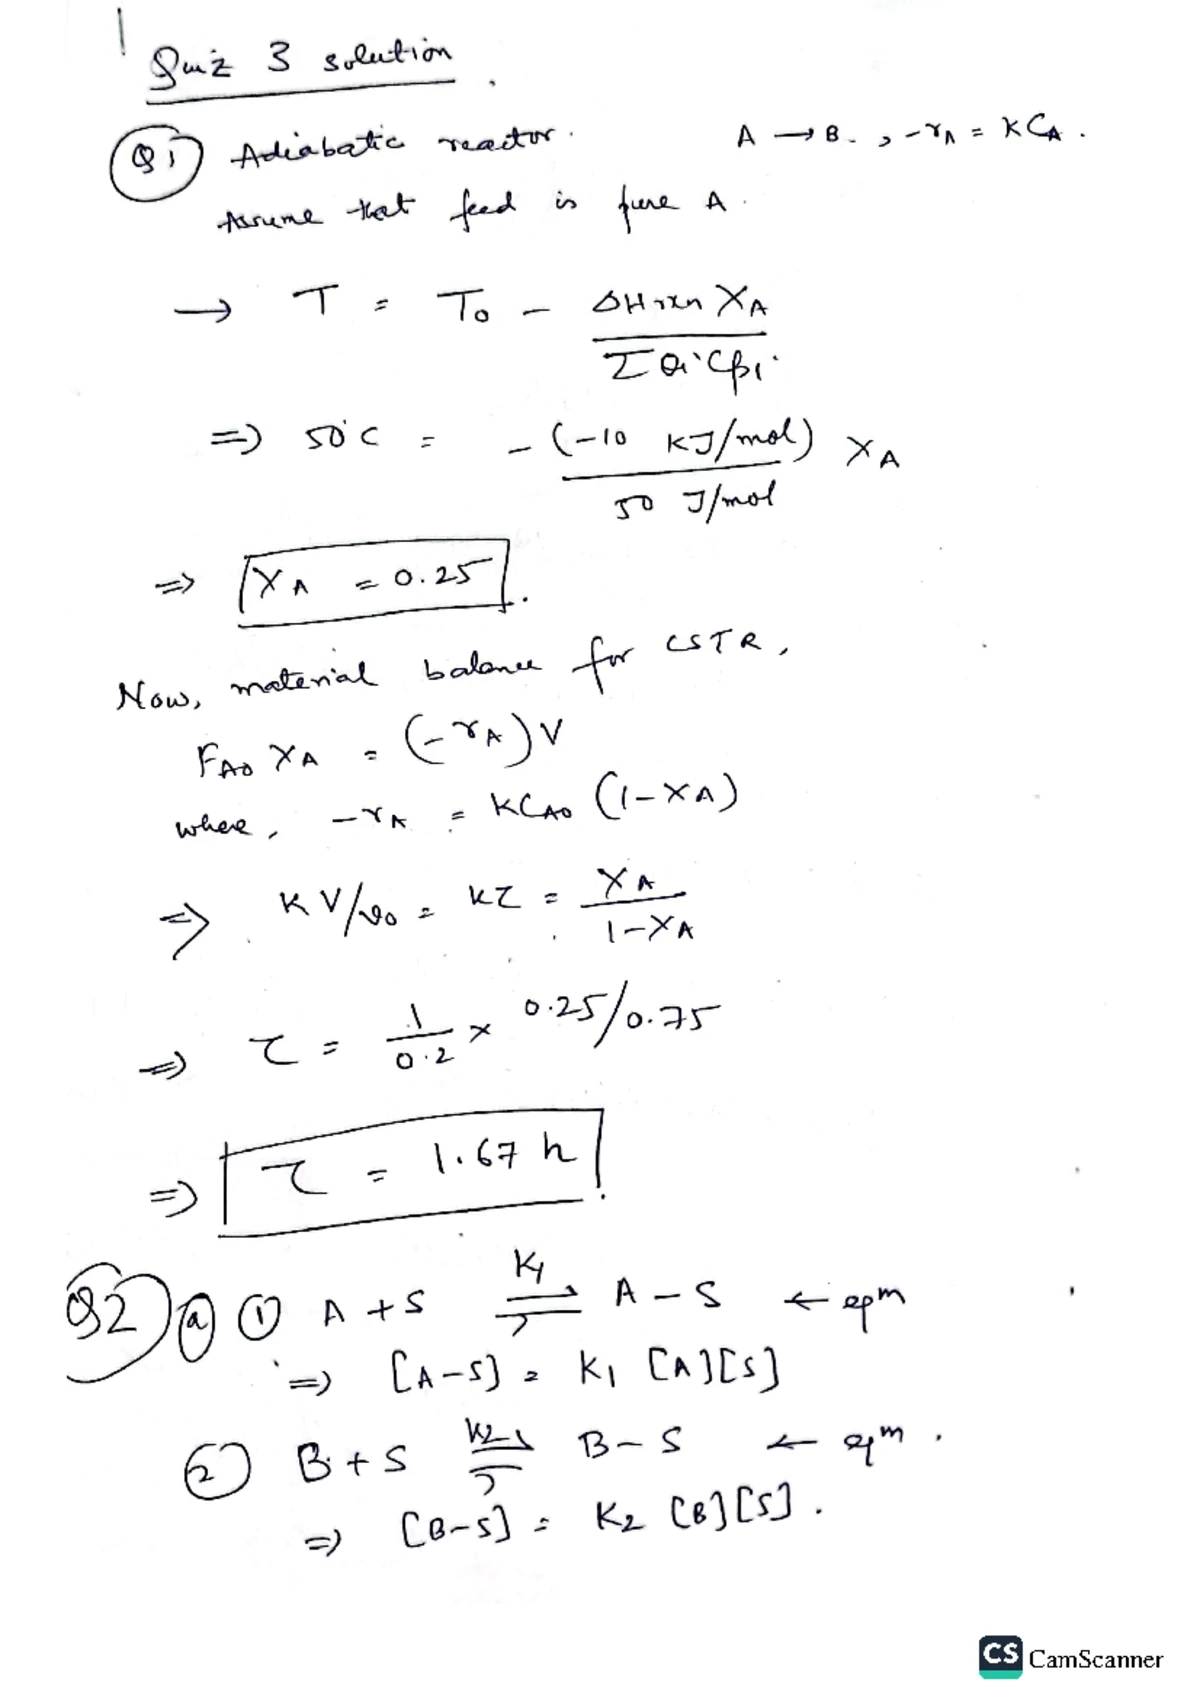 Quiz 3 solution
Q1 Adiabatic reactor. A → B. , -rA = KCA.
Assume that feed is pure A.
→ T = T0 - ΔHrxn XA / Σθi Cpi
⇒ 50°C = -(-10 KJ/mol) XA / 50 J/mol
⇒ XA = 0.25.
Now, material balance for CSTR,
FA0 XA = (-rA)V
where, -rA = KCA0 (1-XA)
⇒ K V/v0 = Kτ = XA / 1-XA
⇒ τ = 1/0.2 × 0.25/0.75
⇒ τ = 1.67 h.
Q2 a 1 A + S ⇌ K1 A-S ← eqm
⇒ [A-S] = K1 [A][S]
2 B + S ⇌ K2 B-S ← eqm.
⇒ [B-S] = K2 [B][S].
CS CamScanner